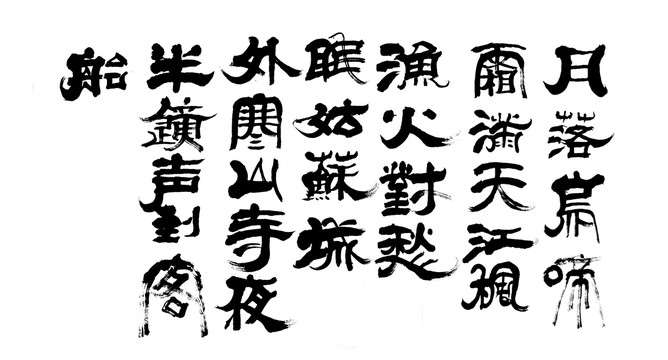 月落烏啼
霜滿天江楓
漁火對愁
眠姑蘇城
外寒山寺夜
半鐘声到客
船